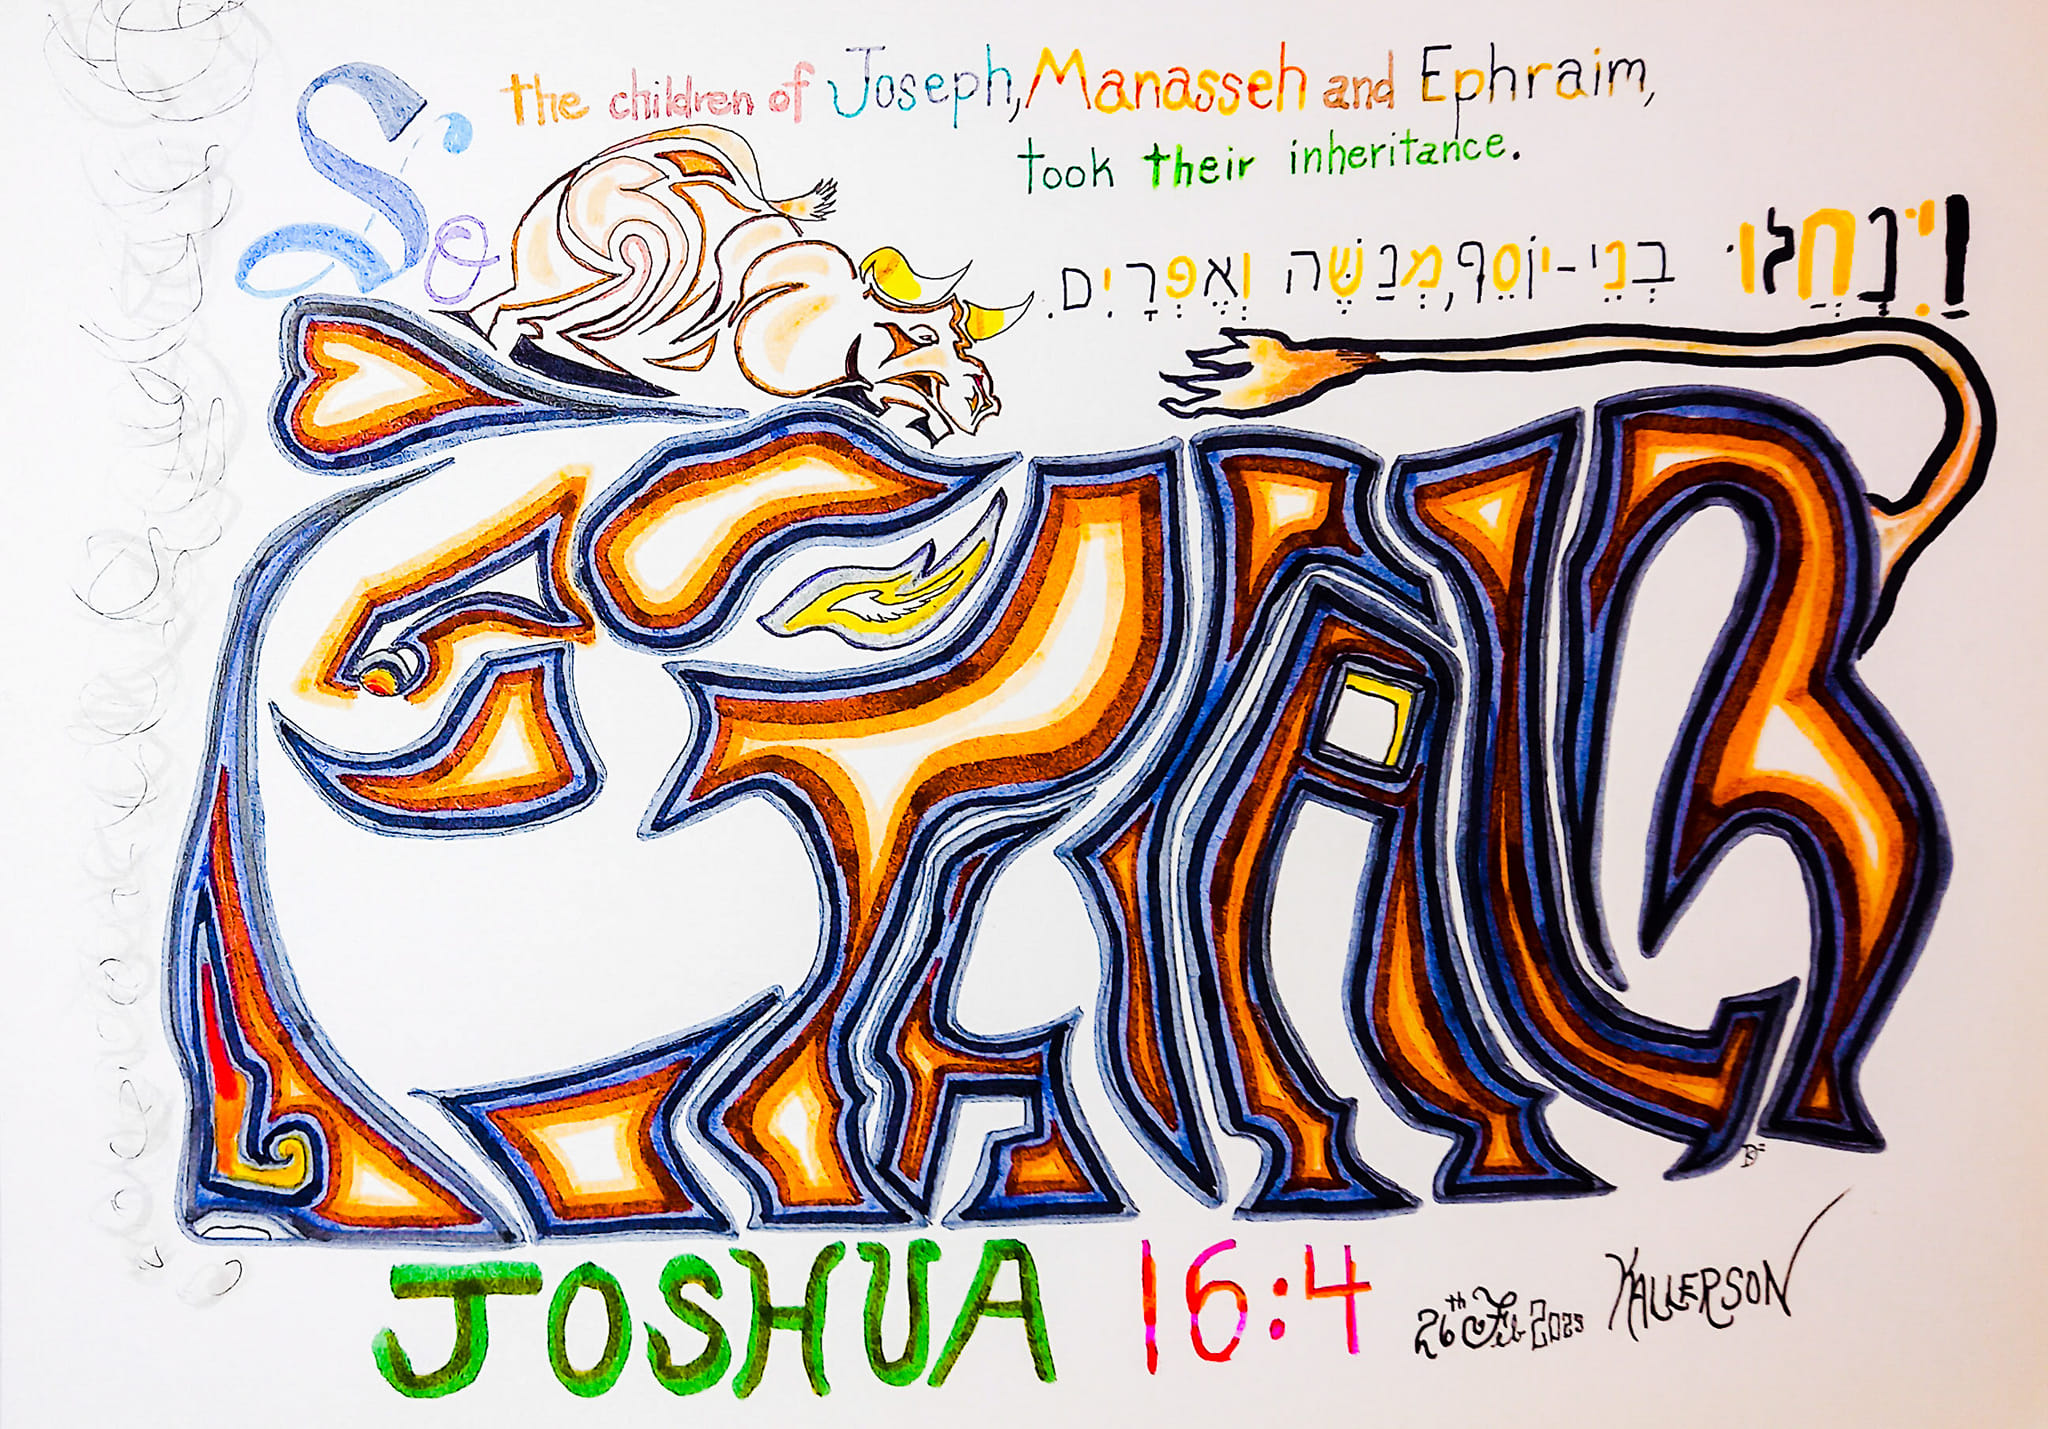 So the children of Joseph, Manasseh and Ephraim,
took their inheritance.
וַיִּנְחֲלוּ בְנֵי-יוֹסֵף, מְנַשֶּׁה וְאֶפְרָיִם.
JOSHUA 16:4
26th Feb 2025 KALLERSON